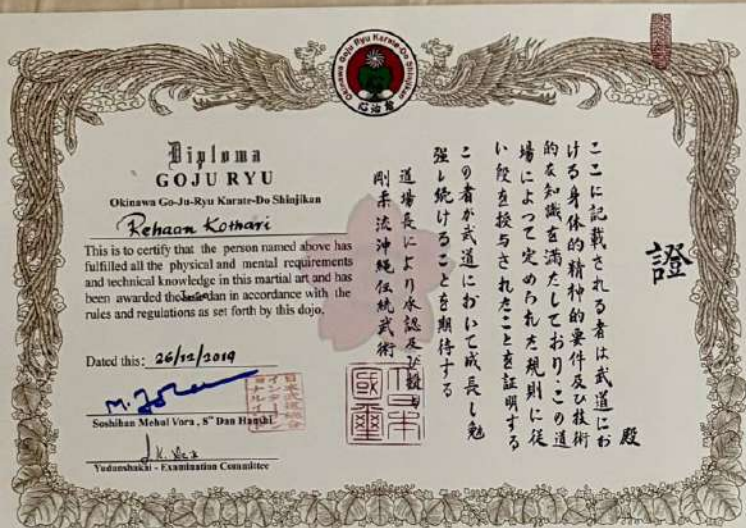 Okinawa Goju Ryu Karate-Do Shinjikan
Diploma
GOJU RYU
Okinawa Go-Ju-Ryu Karate-Do Shinjikan
Rehaan Kothari
This is to certify that the person named above has
fulfilled all the physical and mental requirements
and technical knowledge in this martial art and has
been awarded the dan in accordance with the
rules and regulations as set forth by this dojo.
Dated this: 26/12/2019
Soshihan Mehul Vora, 8th Dan Hanshi
Yudanshakai - Examination Committee
證
殿
ここに記載される者は武道にお
ける身体的精神的要件及び技術
的な知識を満たしており、この道
場によって定められた規則に従
い段を授与されたことを証明する
この者が武道において成長し勉
強し続けることを期待する
道場長により承認及び授与
剛柔流沖縄伝統武術
大日本
國璽